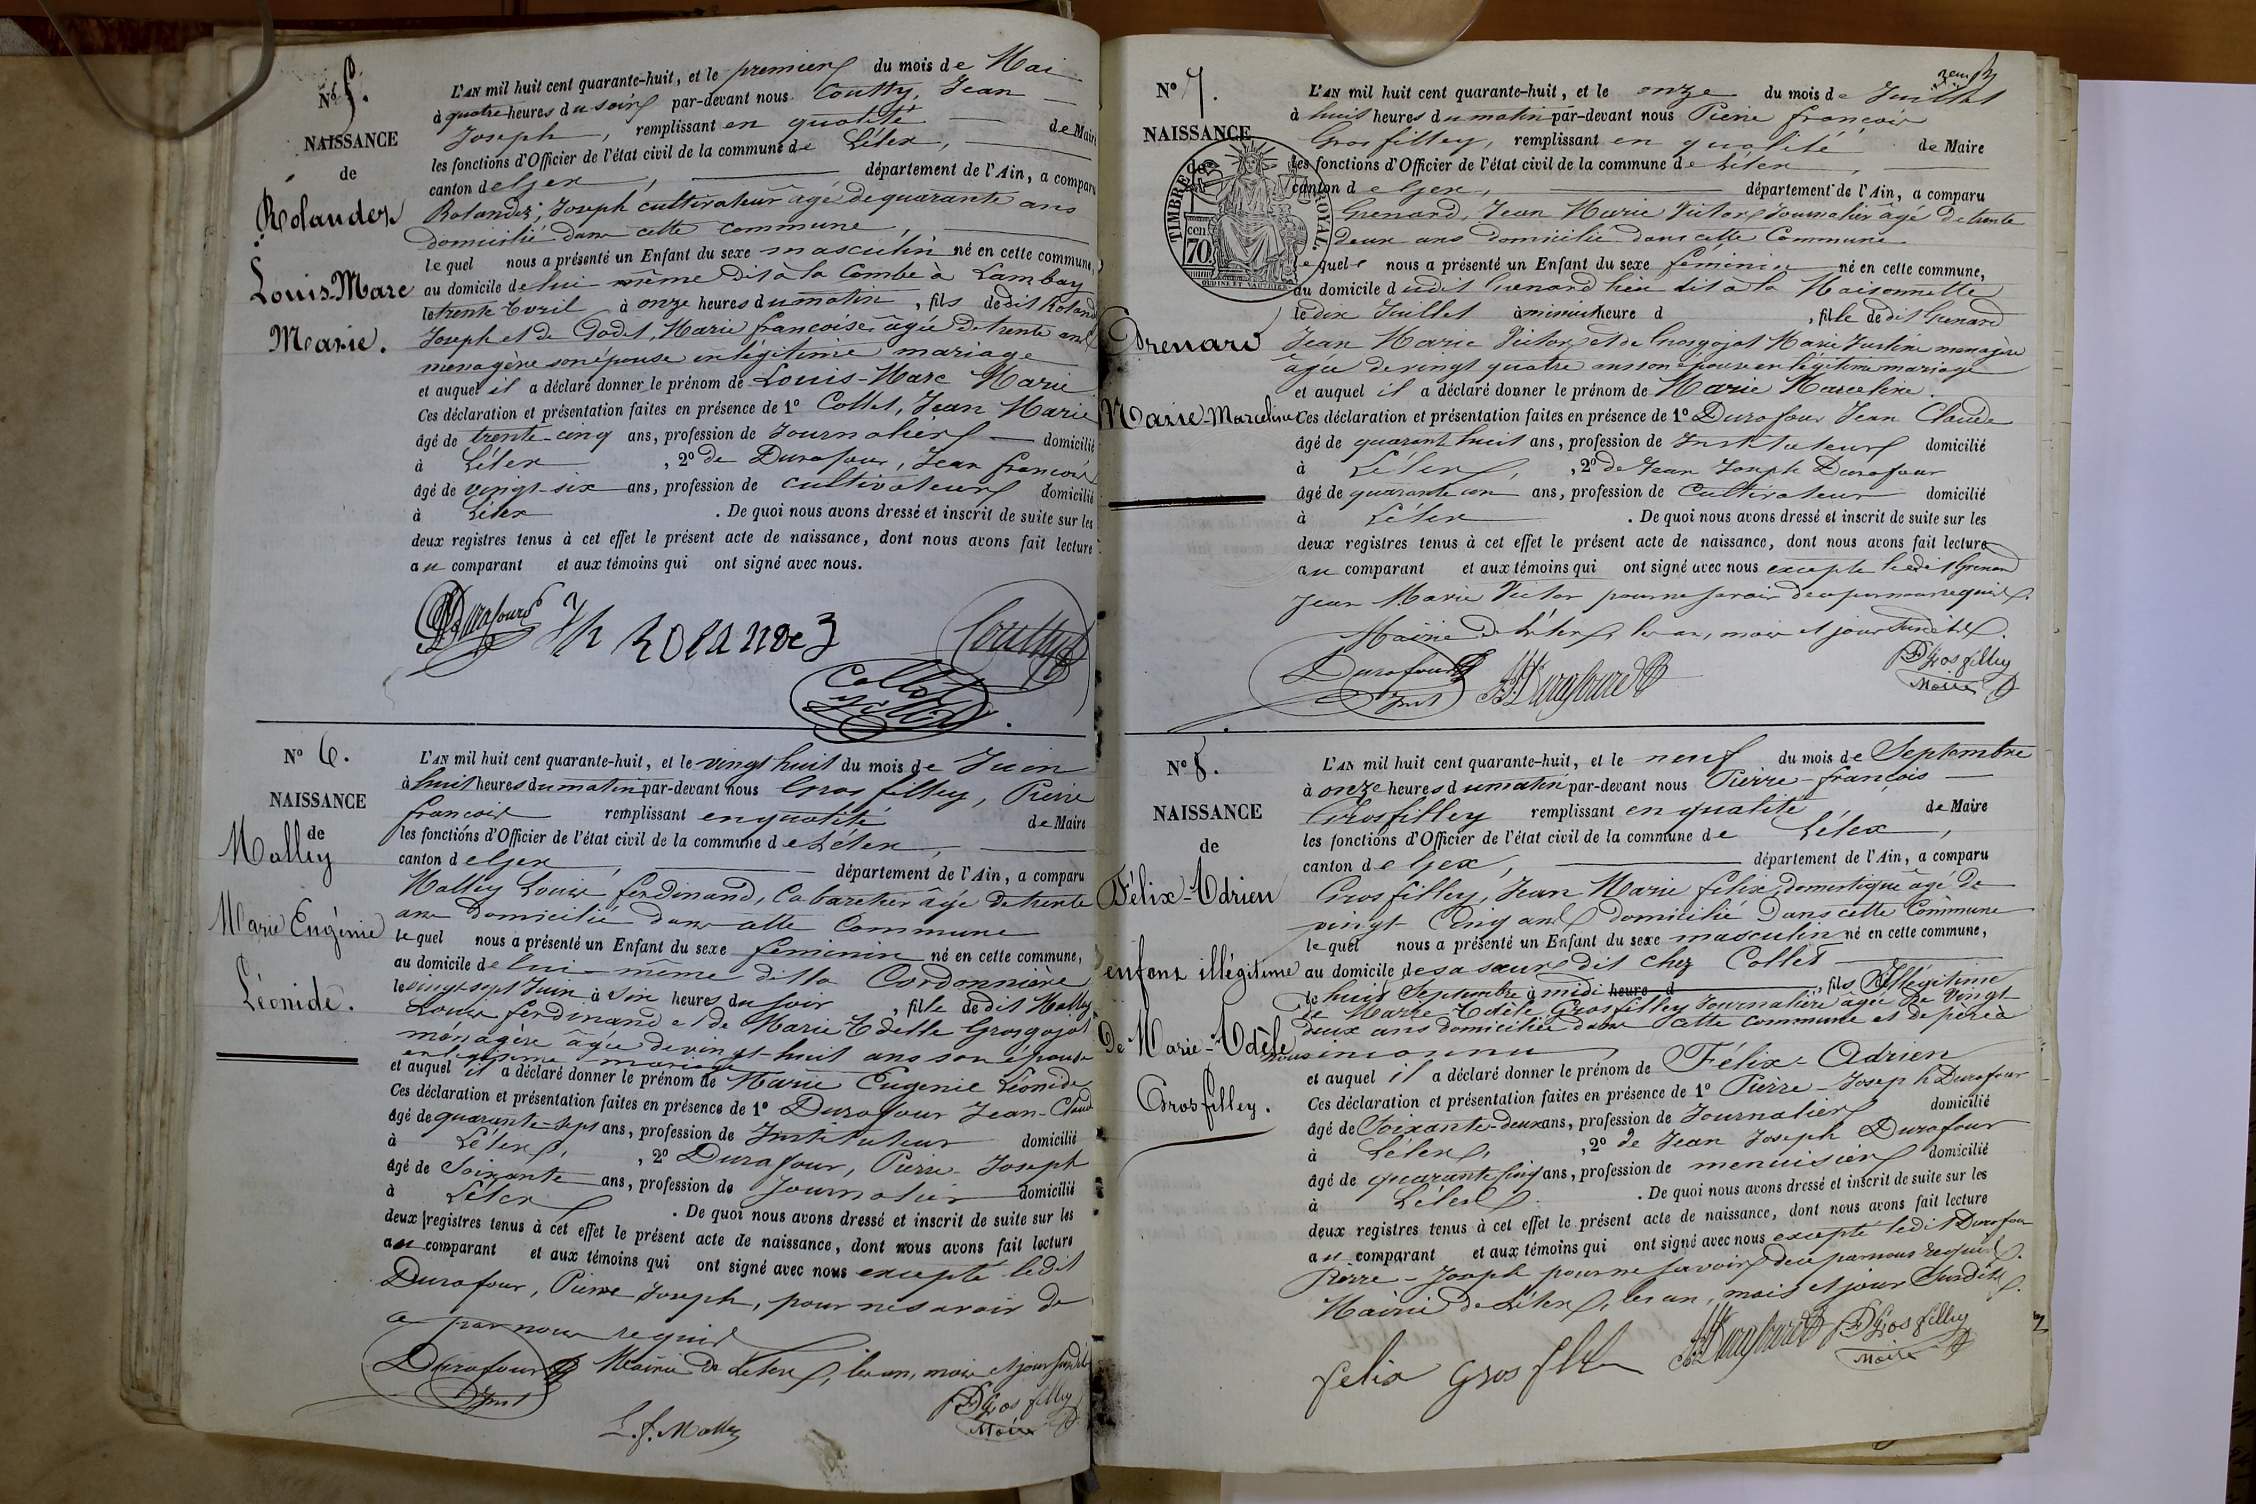 No 5.
NAISSANCE
de
Rolandez
Louis-Marc
Marie.
L'AN mil huit cent quarante-huit, et le premier du mois de Mai
à quatre heures du soir par-devant nous Coutty, Jean
Joseph, remplissant en qualité de Maire
les fonctions d'Officier de l'état civil de la commune de Lélex,
canton de Gex, département de l'Ain, a comparu
Rolandez, Joseph cultivateur âgé de quarante ans
domicilié dans cette commune,
lequel nous a présenté un Enfant du sexe masculin né en cette commune,
au domicile de lui même dit à la Combe à Lambay
le trente Avril à onze heures du matin, fils dedit Roland
Joseph et de Godet, Marie françoise âgée de trente ans
menagère son épouse en légitime mariage
et auquel il a déclaré donner le prénom de Louis-Marc Marie
Ces déclaration et présentation faites en présence de 1º Collet, Jean Marie
âgé de trente cinq ans, profession de Journalier domicilié
à Lélex, 2º de Durafour, Jean françois
âgé de vingt-six ans, profession de cultivateur domicilié
à Lélex. De quoi nous avons dressé et inscrit de suite sur les
deux registres tenus à cet effet le présent acte de naissance, dont nous avons fait lecture
au comparant et aux témoins qui ont signé avec nous.
Durafour Jh Rolandez Coutty
Collet
No 6.
NAISSANCE
de
Molley
Marie Eugénie
Léonide.
L'AN mil huit cent quarante-huit, et le vingt huit du mois de Juin
à huit heures du matin par-devant nous Gros filley, Pierre
françois remplissant en qualité de Maire
les fonctions d'Officier de l'état civil de la commune de Lélex,
canton de Gex, département de l'Ain, a comparu
Molley Louis ferdinand, Cabaretier âgé de trente
ans domicilié dans cette Commune
lequel nous a présenté un Enfant du sexe feminin né en cette commune,
au domicile de lui-même dit la Cordonnière
le vingt sept Juin à Six heures du soir, fille dedit Molley
Louis ferdinand et de Marie Adelle Grosgojat
ménagère âgée de vingt-huit ans son épouse
en légitime mariage
et auquel il a déclaré donner le prénom de Marie Eugenie Léonide
Ces déclaration et présentation faites en présence de 1º Durafour Jean-Claude
âgé de quarante-sept ans, profession de Instituteur domicilié
à Lélex, 2º Durafour, Pierre-Joseph
âgé de Soixante ans, profession de Journalier domicilié
à Lélex. De quoi nous avons dressé et inscrit de suite sur les
deux registres tenus à cet effet le présent acte de naissance, dont nous avons fait lecture
au comparant et aux témoins qui ont signé avec nous excepté ledit
Durafour, Pierre Joseph, pour ne savoir de
ce par nous requis
Durafour Mairie de Lélex, les an, mois et jour susdits
Inst
PF Gros filley
Maire
L. f. Molley
No 7.
NAISSANCE
de
TIMBRE ROYAL.
70
Grenard
Marie-Marceline
L'AN mil huit cent quarante-huit, et le onze du mois de Juillet
à huit heures du matin par-devant nous Pierre françois
Gros filley, remplissant en qualité de Maire
les fonctions d'Officier de l'état civil de la commune de Lélex,
canton de Gex, département de l'Ain, a comparu
Grenard, Jean Marie Victor Journalier âgé de trente
deux ans domicilié dans cette Commune
lequel nous a présenté un Enfant du sexe feminin né en cette commune,
au domicile dudit Grenard lieu dit à la Maisonnette
le dix Juillet à minuit heure d, fille dedit Grenard
Jean Marie Victor et de Grosgojat Marie Justine menagère
âgée de vingt quatre ans son épouse en légitime mariage
et auquel il a déclaré donner le prénom de Marie Marceline.
Ces déclaration et présentation faites en présence de 1º Durafour Jean Claude
âgé de quarante huit ans, profession de Instituteur domicilié
à Lélex, 2º de Jean Joseph Durafour
âgé de quarante cinq ans, profession de Cultivateur domicilié
à Lélex. De quoi nous avons dressé et inscrit de suite sur les
deux registres tenus à cet effet le présent acte de naissance, dont nous avons fait lecture
au comparant et aux témoins qui ont signé avec nous excepté ledit Grenard
Jean Marie Victor pour ne savoir de ce par nous requis.
Mairie de Lélex, les an, mois et jour Susdits.
Durafour JJ Durafour PF Gros filley
Inst Maire
No 8.
NAISSANCE
de
Félix-Adrien
enfant illégitime
De Marie-Adèle
Grosfilley.
L'AN mil huit cent quarante-huit, et le neuf du mois de Septembre
à onze heures du matin par-devant nous Pierre-françois
Grosfilley remplissant en qualité, de Maire
les fonctions d'Officier de l'état civil de la commune de Lélex,
canton de Gex, département de l'Ain, a comparu
Gros filley, Jean Marie felix, domestique âgé de
vingt Cinq ans domicilié Dans cette Commune
lequel nous a présenté un Enfant du sexe masculin né en cette commune,
au domicile de sa sœur dit chez Collet
le huit Septembre à midi heure d, fils Illégitime
de Marie Adèle Grosfilley Journalière âgée de vingt-
deux ans domiciliée dans cette commune et de père à
nous inconnu
et auquel il a déclaré donner le prénom de Félix-Adrien
Ces déclaration et présentation faites en présence de 1º Pierre-Joseph Durafour
âgé de Soixante-deux ans, profession de Journalier domicilié
à Lélex, 2º de Jean Joseph Durafour
âgé de quarante Cinq ans, profession de menuisier domicilié
à Lélex. De quoi nous avons dressé et inscrit de suite sur les
deux registres tenus à cet effet le présent acte de naissance, dont nous avons fait lecture
au comparant et aux témoins qui ont signé avec nous excepté ledit Durafour
Pierre-Joseph pour ne savoir de ce par nous requis.
Mairie de Lélex, les an, mois et jour Susdits.
felix Gros filley JJ Durafour PF Gros filley
Maire